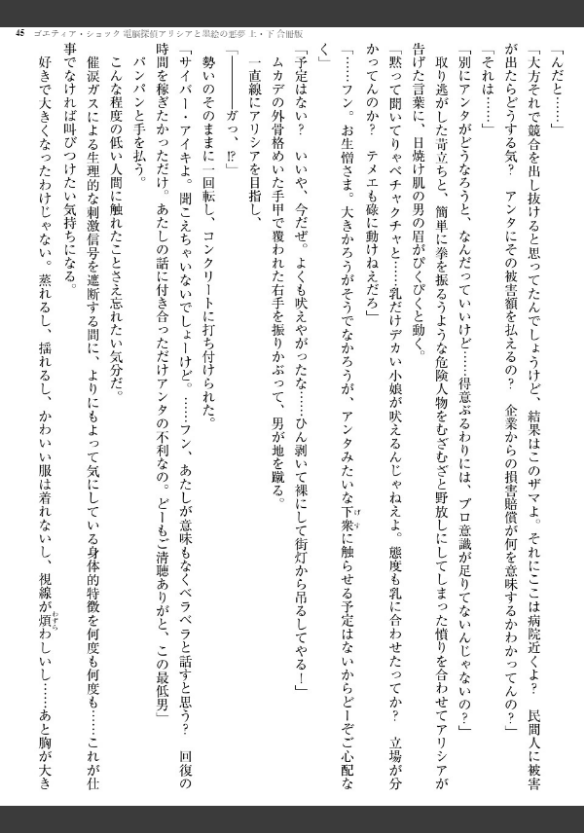 45 ゴエティア・ショック 電脳探偵アリシアと墨絵の悪夢 上・下 合冊版
「んだと……」
「大方それで競合を出し抜けると思ってたんでしょうけど、結果はこのザマよ。それにここは病院近くよ？　民間人に被害
が出たらどうする気？　アンタにその被害額を払えるの？　企業からの損害賠償が何を意味するかわかってんの？」
「それは……」
「別にアンタがどうなろうと、なんだっていいけど……得意ぶるわりには、プロ意識が足りてないんじゃないの？」
取り逃がした苛立ちと、簡単に拳を振るうような危険人物をむざむざと野放しにしてしまった憤りを合わせてアリシアが
告げた言葉に、日焼け肌の男の眉がぴくぴくと動く。
「黙って聞いてりゃベチャクチャと……乳だけデカい小娘が吠えるんじゃねえよ。態度も乳に合わせたってか？　立場が分
かってんのか？　テメエも碌に動けねえだろ」
「……フン。お生憎さま。大きかろうがそうでなかろうが、アンタみたいな下衆に触らせる予定はないからどーぞご心配な
く」
「予定はない？　いいや、今だぜ。よくも吠えやがったな……ひん剥いて裸にして街灯から吊るしてやる！」
ムカデの外骨格めいた手甲で覆われた右手を振りかぶって、男が地を蹴る。
一直線にアリシアを目指し、
「――――ガっ、⁉」
勢いのそのままに一回転し、コンクリートに打ち付けられた。
「サイバー・アイキよ。聞こえちゃいないでしょーけど。……フン、あたしが意味もなくベラベラと話すと思う？　回復の
時間を稼ぎたかっただけ。あたしの話に付き合っただけアンタの不利なの。どーもご清聴ありがと、この最低男」
パンパンと手を払う。
こんな程度の低い人間に触れたことさえ忘れたい気分だ。
催涙ガスによる生理的な刺激信号を遮断する間に、よりにもよって気にしている身体的特徴を何度も何度も……これが仕
事でなければ叫びつけたい気持ちになる。
好きで大きくなったわけじゃない。蒸れるし、揺れるし、かわいい服は着れないし、視線が煩わしいし……あと胸が大き